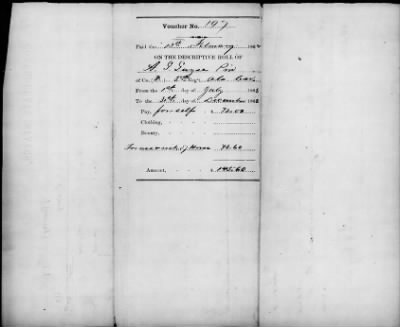 Voucher No. 197
Paid the 13th February 186
ON THE DESCRIPTIVE ROLL OF
of Co. 2d Reg't Ala Cav
From the 1st day of July 186
To the 31st day of December 186
Pay, for self $ 72.00
Clothing,
Bounty,
For use & risk of Horse 73.60
Amount, $ 145.60